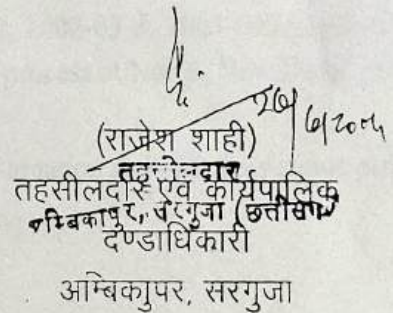 26/6/200
(राजेश शाही)
तहसीलदार
तहसीलदार एवं कार्यपालिक
अम्बिकापुर, सरगुजा (छत्तीसगढ़)
दण्डाधिकारी
अम्बिकापुर, सरगुजा